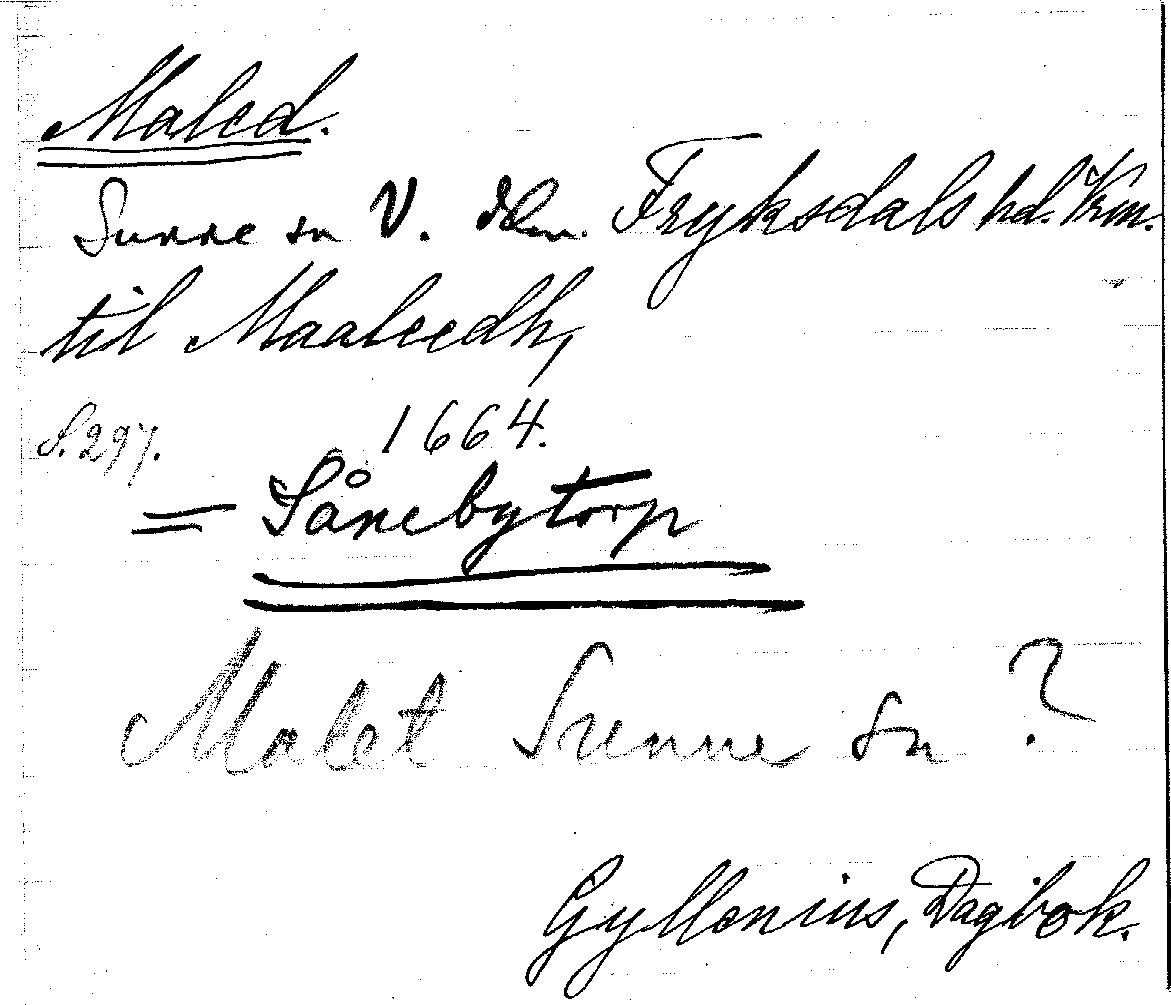 Maled.
Sunne sn V. älvn. Fryksdals hd. Vrm.
til Maaleedh,
S. 297. 1664.
= Sånebytorp
Malet Sunne sn ?
Gyllenius, Dagbok.